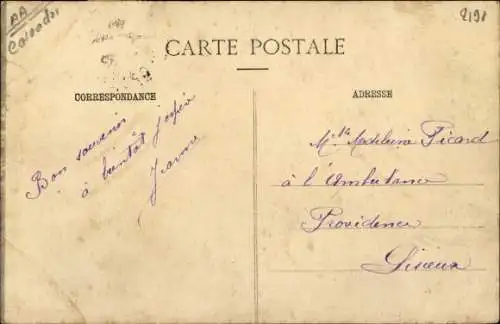 AA
Calvados
2198
CARTE POSTALE
CORRESPONDANCE
ADRESSE
Bon souvenir
à bientôt j'espère
Jeanne
Mlle Madeleine Picard
à l'Ambulance
Providence
Lisieux